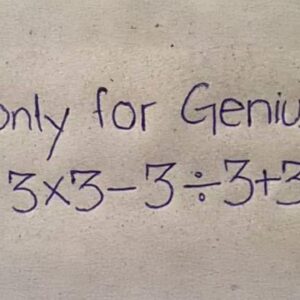 only for Geniu
3×3-3÷3+3